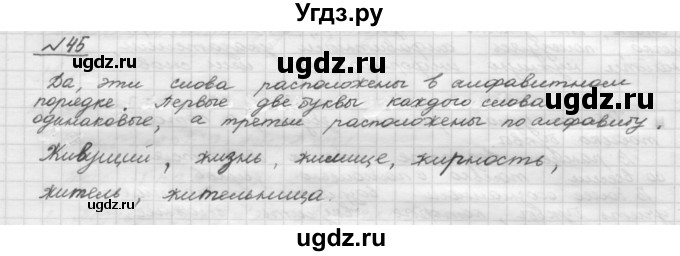 Угдз.ру
№45
Да, эти слова расположены в алфавитном
порядке. Первые две буквы каждого слова
одинаковые, а третьи расположены по алфавиту.
Живущий, жизнь, жилище, жирность,
житель, жительница.
ugdz.ru
ugdz.ru
ugdz.ru
ugdz.ru
ugdz.ru
ugdz.ru
ugdz.ru